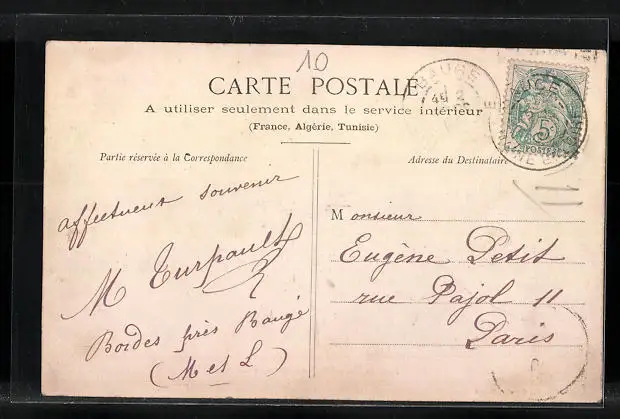 10
CARTE POSTALE
A utiliser seulement dans le service intérieur
(France, Algérie, Tunisie)
Partie réservée à la Correspondance
affectueux souvenir
M Turpault
Bordes près Baugé
(M et L)
Adresse du Destinataire
Monsieur
Eugène Petit
rue Pajol 11
Paris
BAUGE
5
POSTES
11